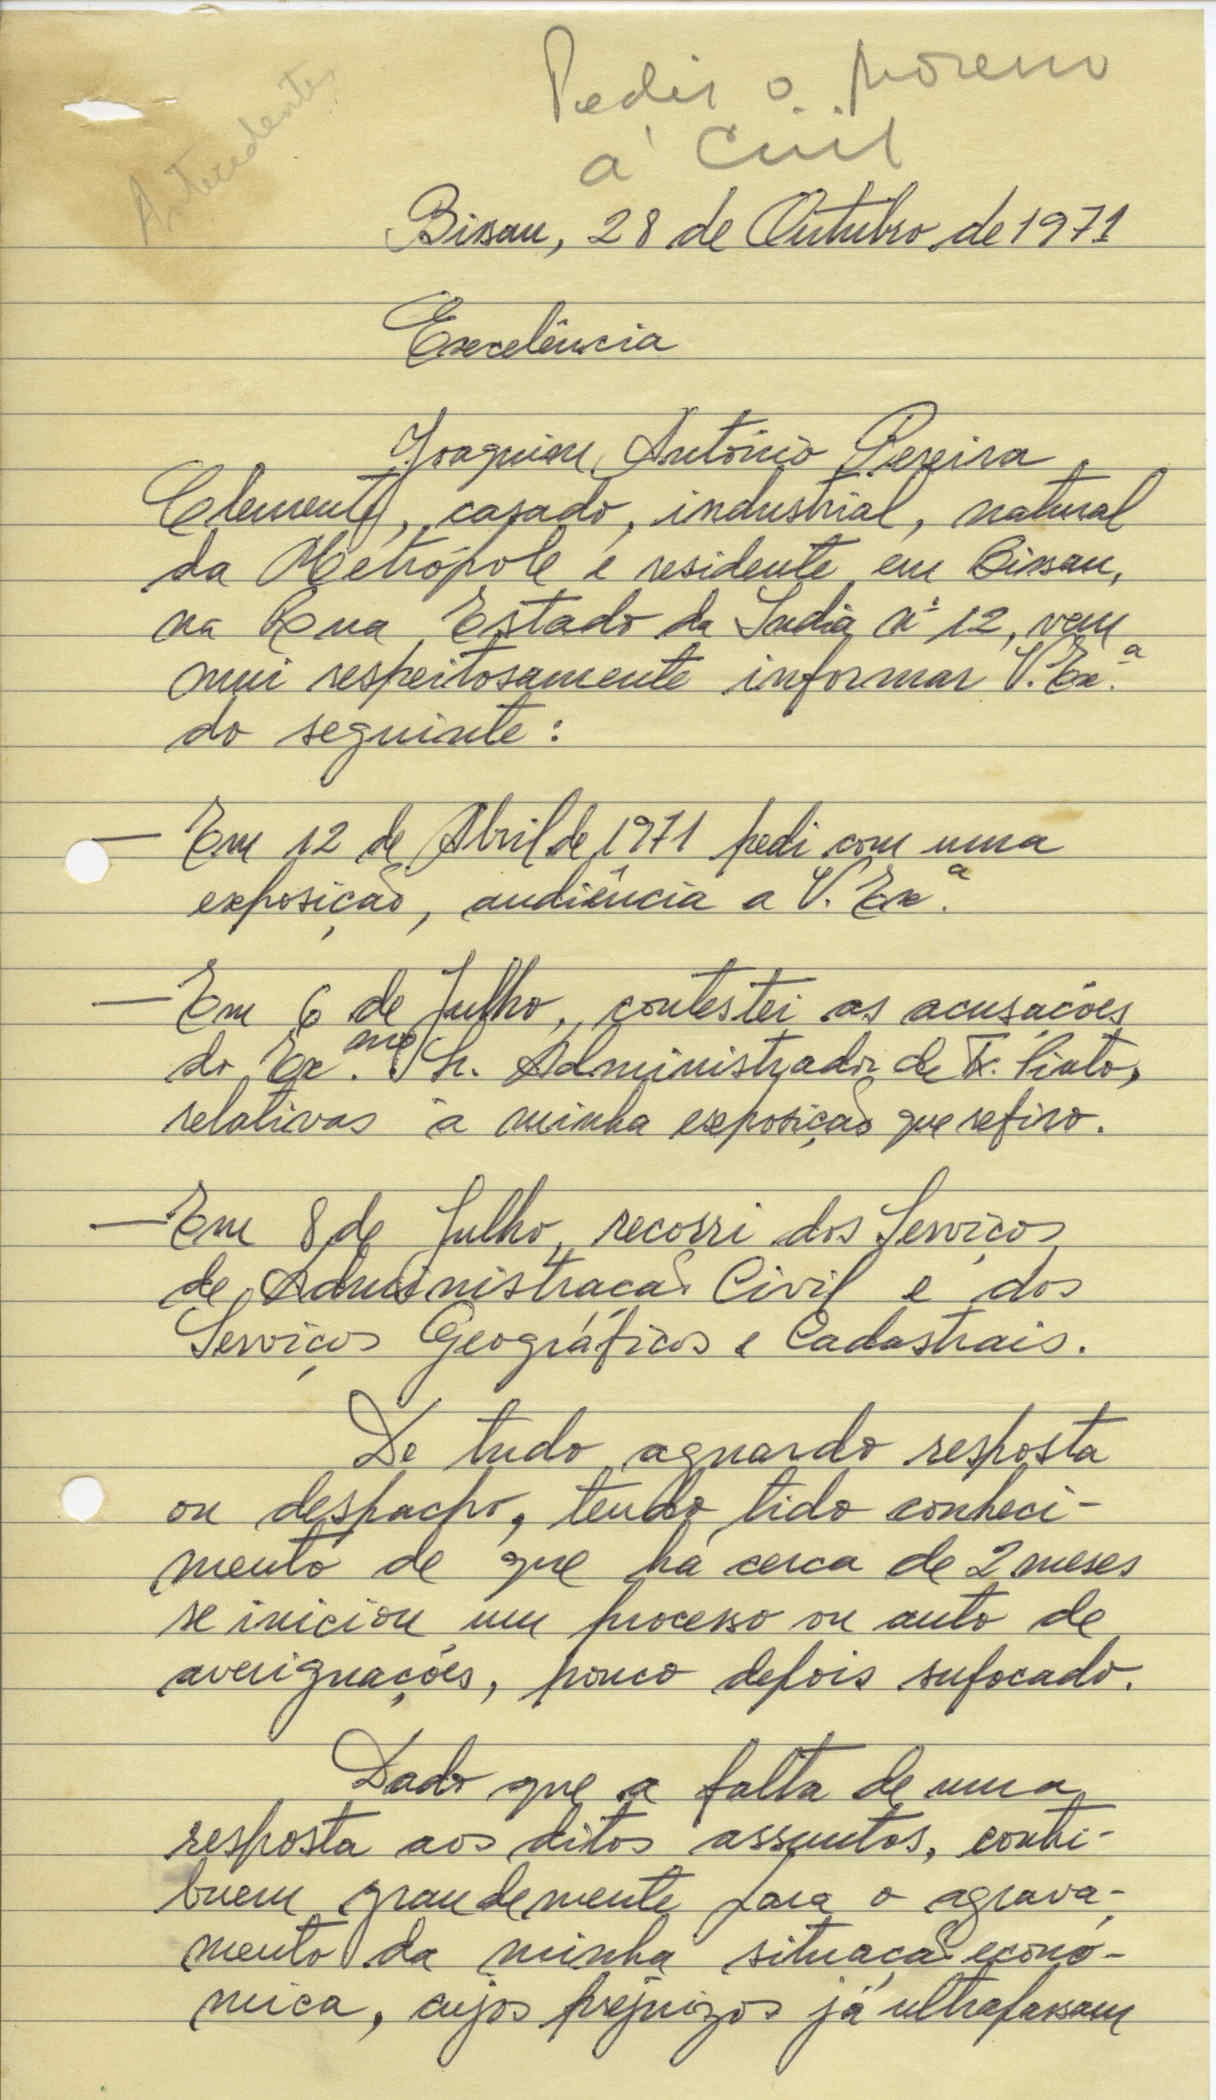 Pedir o Moreno
à Civil
Antecedentes
Bissau, 28 de Outubro de 1971
Excelência
Joaquim António Pereira
Clemente, casado, industrial, natural
da Metrópole e residente em Bissau,
na Rua Estado da India nº 12, vem
mui respeitosamente informar V. Ex.ª
do seguinte:
— Em 12 de Abril de 1971 pedi com uma
exposição, audiência a V. Ex.ª
— Em 6 de Julho, contestei as acusações
do Ex.mo Sr. Administrador de Tx. Pinto,
relativas à minha exposição que refiro.
— Em 8 de Julho, recorri dos Serviços
de Administração Civil e dos
Serviços Geográficos e Cadastrais.
De tudo aguardo resposta
ou despacho, tendo tido conheci-
mento de que há cerca de 2 meses
se iniciou um processo ou auto de
averiguações, pouco depois sufocado.
Dado que a falta de uma
resposta aos ditos assuntos, contri-
buem grandemente para o agrava-
mento da minha situação econó-
mica, cujos prejuizos já ultrapassam